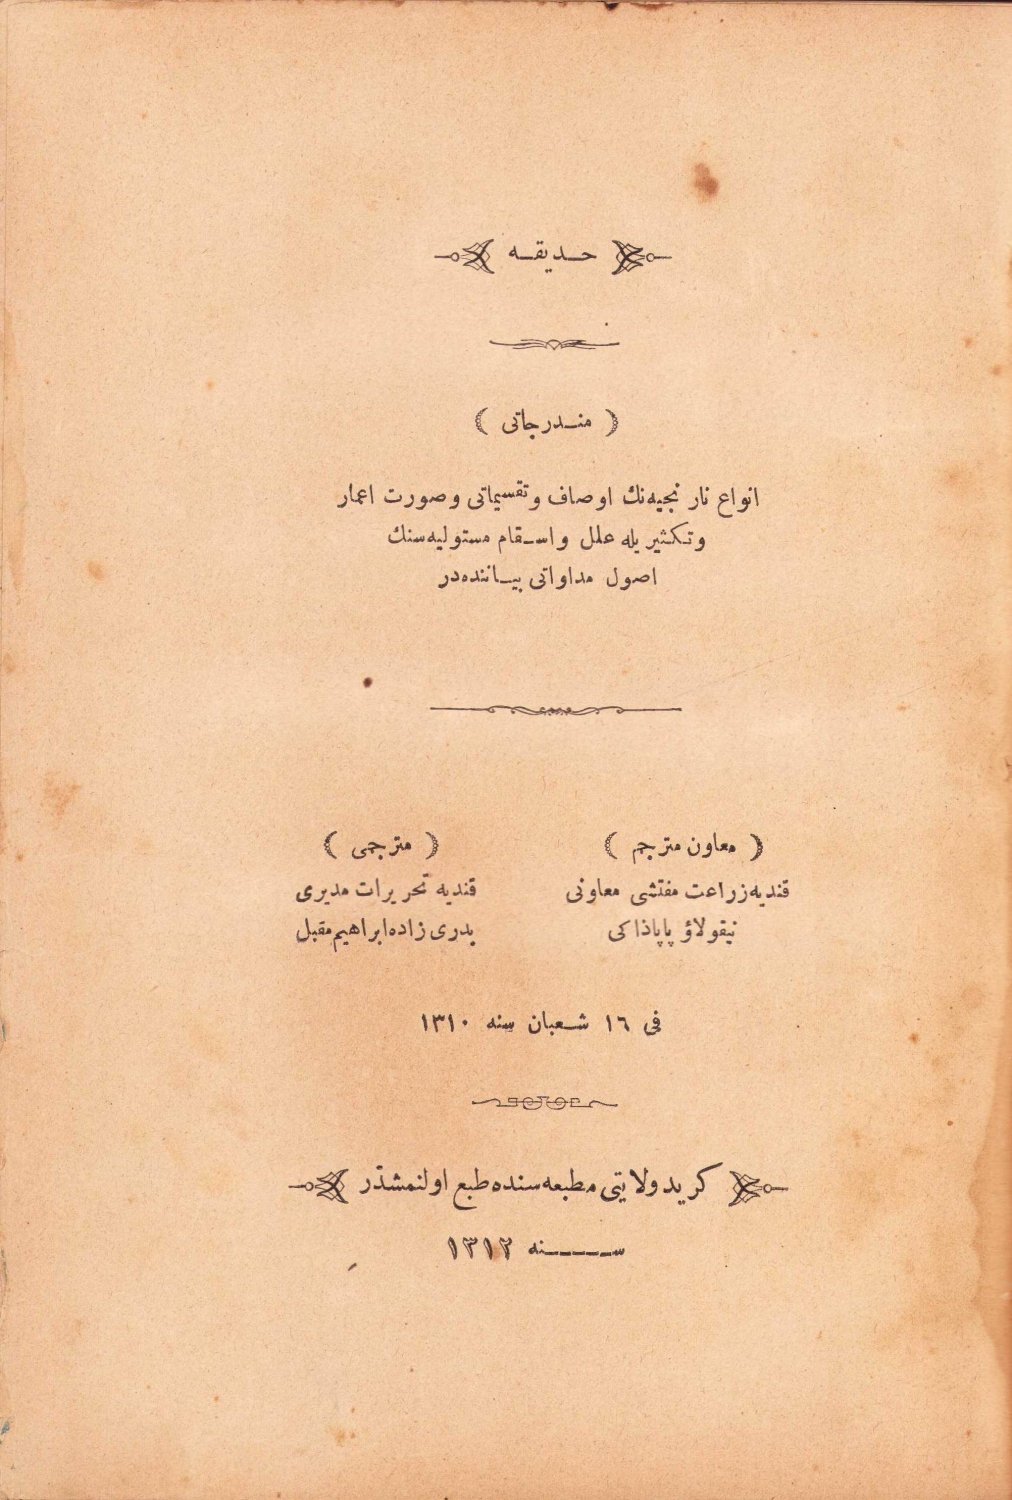 حديقه
( مندرجاتى )
انواع نارنجيه‌نك اوصاف و تقسيماتى و صورت اعمار
و تكثيريله علل و اسقام مستوليه‌سنك
اصول مداواتى بياننده‌در
( معاون مترجم )
قنديه زراعت مفتشى معاونى
نيقولاؤ پاپاذاكى
( مترجمى )
قنديه تحريرات مديرى
بدرى زاده ابراهيم مقبل
فى ١٦ شعبان سنه ١٣١٠
كريد ولايتى مطبعه‌سنده طبع اولنمشدر
سنه ١٣١٢